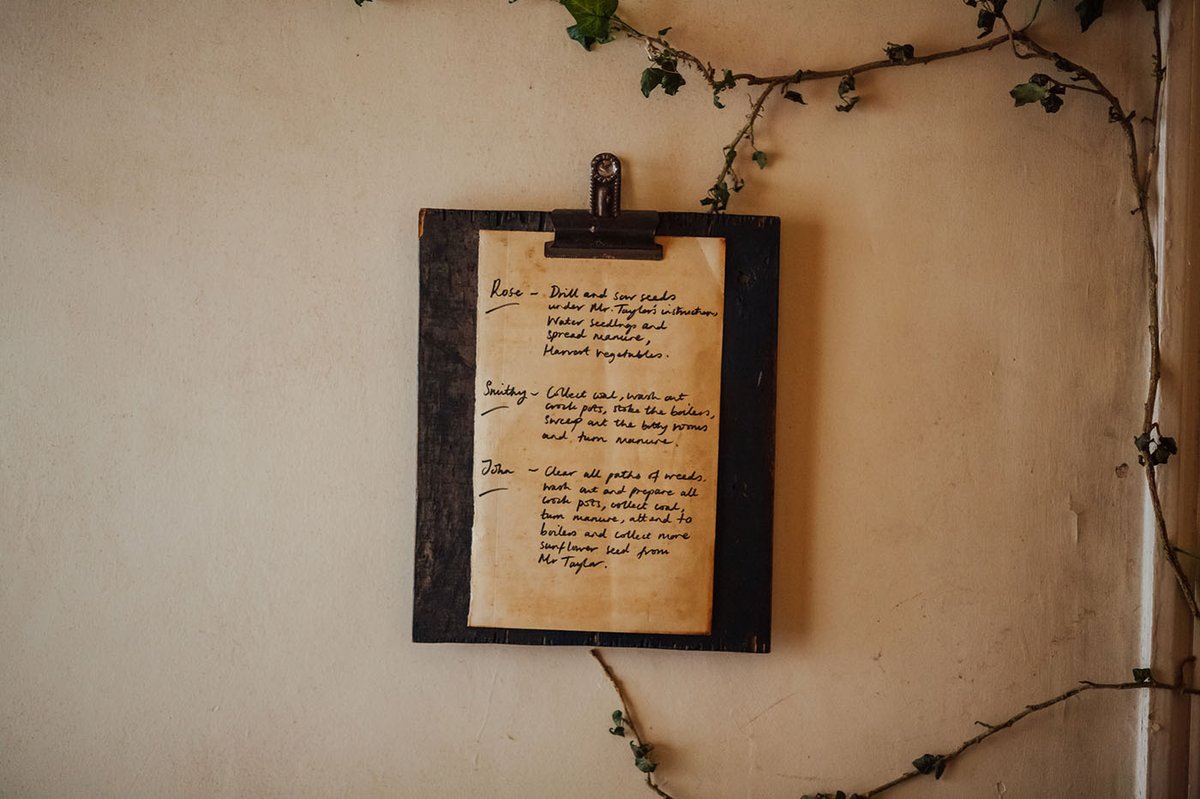 Rose – Drill and sow seeds
under Mr. Taylor's instruction,
Water seedlings and
spread manure,
Harvest vegetables.
Smithy – Collect coal, wash out
crock pots, stoke the boilers,
sweep out the bothy rooms
and turn manure.
John – Clear all paths of weeds.
wash out and prepare all
crock pots, collect coal,
turn manure, attend to
boilers and collect more
sunflower seed from
Mr Taylor.